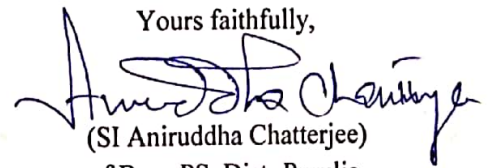 Yours faithfully,
Aniruddha Chatterjee
(SI Aniruddha Chatterjee)